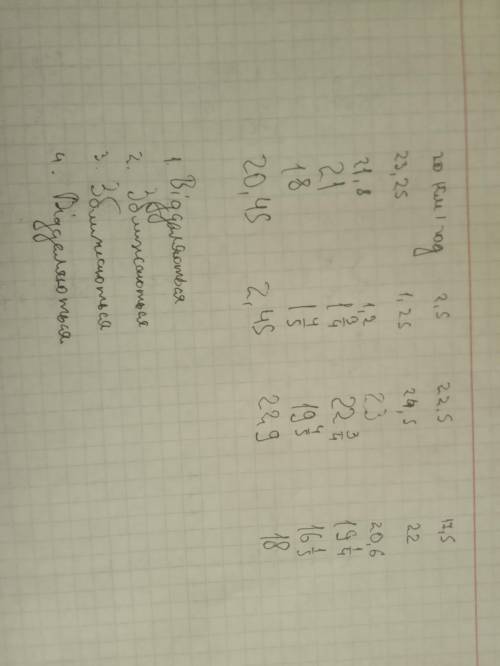 20 км/год 2,5 22,5 17,5
23,25 1,25 24,5 22
21,8 1,2 23 20,6
21 1 3/4 22 3/4 19 1/4
18 1 4/5 19 4/5 16 1/5
20,45 2,45 22,9 18
1. Віддаляються
2. Зближаються
3. Зближаються
4. Віддаляються